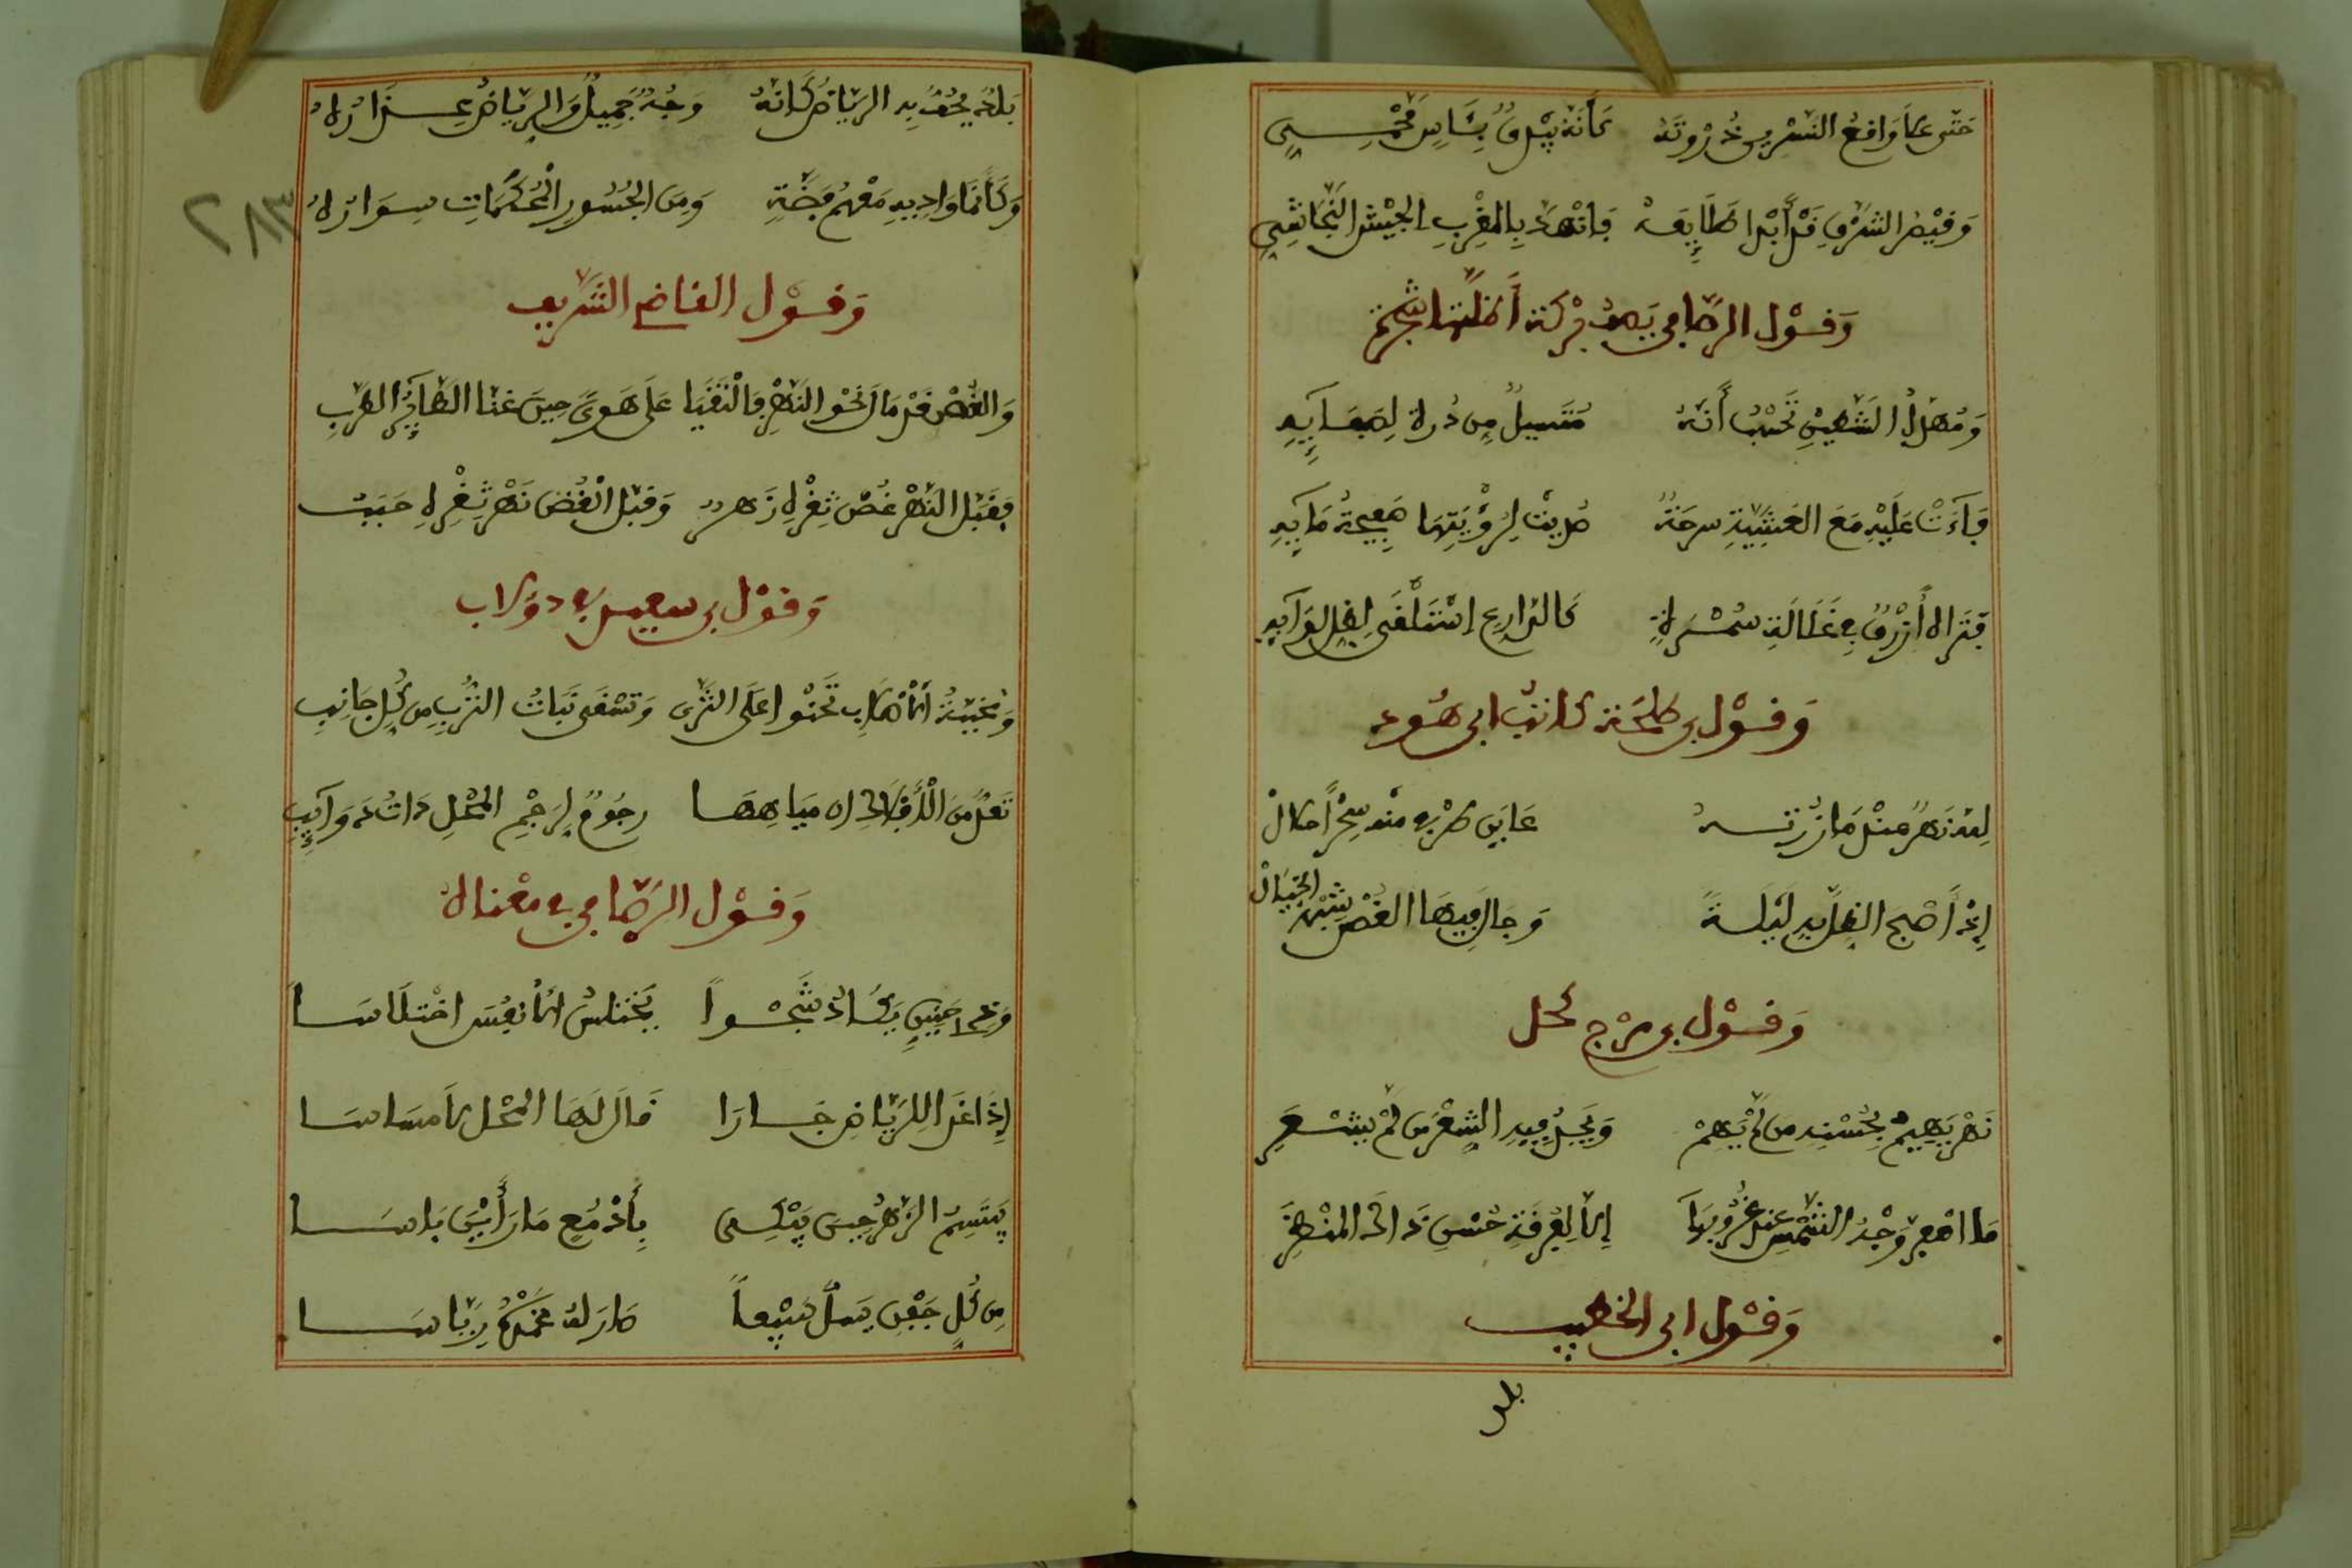 حَتّى علَا وَاقِعُ النَّسْرينِ ذُرْوَتَهُ كَأنَّهُ بَيْدَقٌ بِشَاسٍ
وَقَيْصَرُ الشَّرْقِ قَدْ أَبْدَا طَلَايِعَهُ فَانْهَدَّ بِالمَغْرِبِ الجَيْشُ النَّجَاشِيِّ
وَقَوْل الرّصَافي يَصِف بِرْكَة أظَلَّتْهَا شَجَرَة
وَمُهَدَّلُ الشَّطَّيْنِ تَحْسبُ أَنَّهُ مُتَسيلٌ مِن دُرة لِصَفَايِهِ
فَاءَتْ عَلَيْهِ مَعَ العَشِيَّةِ سرحَةٌ صَدِيَتْ لِرُؤْيَتِهَا صَفِيحَةُ مَايِهِ
فَتَراه أَزْرَقَ فِي غَلَالَةِ سُمْرَةٍ كَالدَّارِعِ اسْتَلْقَى لِظِلِّ لِوَايِهِ
وَقَوْل بن طلحَة كاتب ابن هُود
لله نَهرٌ عِنْدَ مَا زُرْتُهُ عَايَنَ طَرْفِي مِنْه سِحْراً حلالْ
إذْ أَصْبَحَ الظِلُّ بهِ لَيْلَةً وَجَالَ فِيهَا الغُصْن شِبْهَ الخَيَالْ
وَقَوْل بن مرْج كحل
نَهْر يَهِيمُ بِحُسْنِهِ مَن لَمْ يَهِمْ وَيُجِيدُ فِيهِ الشِعْرَ مَن لَمْ يَشْعُرِ
مَا اصْفَرَّ وَجْهُ الشَّمْسِ عِنْدَ غُرُوبِهَا إلّا لِفُرْقَةِ حُسْنِ ذَاكَ المَنْظَرِ
وَقَوْل ابن الخطيب
بلد
بَلَدٌ يَحُفُّ بِهِ الرّيَاضُ كَأنّهُ وَجْهٌ جَمِيلٌ وَالرِّيَاضُ عِذَارُهُ
وَكَأنّمَا وَادِيهِ مِعْصَمُ فِضَّةٍ وَمِنَ الجُسُورِ المُحْكَمَاتِ سِوَارُهُ
وَقَوْل القاضي الشّريف
وَالغُصْن قَدْ مَالَ نَحْوَ النَّهْرِ فَالْتَقَيَا عَلَى هَوىً حِينَ غنّا الطّايِرُ الطَّرِبِ
فَقَبَّل النَّهْر غُصْن ثَغْرُه زَهر وَقَبَّل الْغُصْن نَهْر ثَغْرُه حَبَب
وَقَوْل بن سعيد في دولاب
وَمُحْنِيَّةُ الأضْلَابِ تَحْنُوا عَلَى الثَّرَى وَتَسْقى نَبَاتُ التُّرْبِ مِن كُلّ جَانِبِ
تعدّ مِنَ الْأفْلَاكِ ان مِيَاهِهَا رجُومٌ لِرَجْمِ المَحْلِ ذاتُ ذَوَايِبِ
وَقَوْل الرّصَافي في معْنَاهُ
وَذِي حَنِينٍ يَكَادُ شَجْواً يَخْتلسُ الأنفُسَ اخْتلَاسَا
إِذَا غَدَا لِلرِّيَاضِ جَارَا قَالَ لَهَا المَحْل لَا مسَاسَا
يَبْتَسِمُ الزَّهْرُ حِينَ يَبْكِي بِأَدْمُعٍ مَا رَأَيْنَ بَاسَا
مِن كُلِّ جَفْنٍ يَسلُّ سَيْفاً صَارَ لهُ غِمْدُهُ رِيَاسَا
٢٨٣